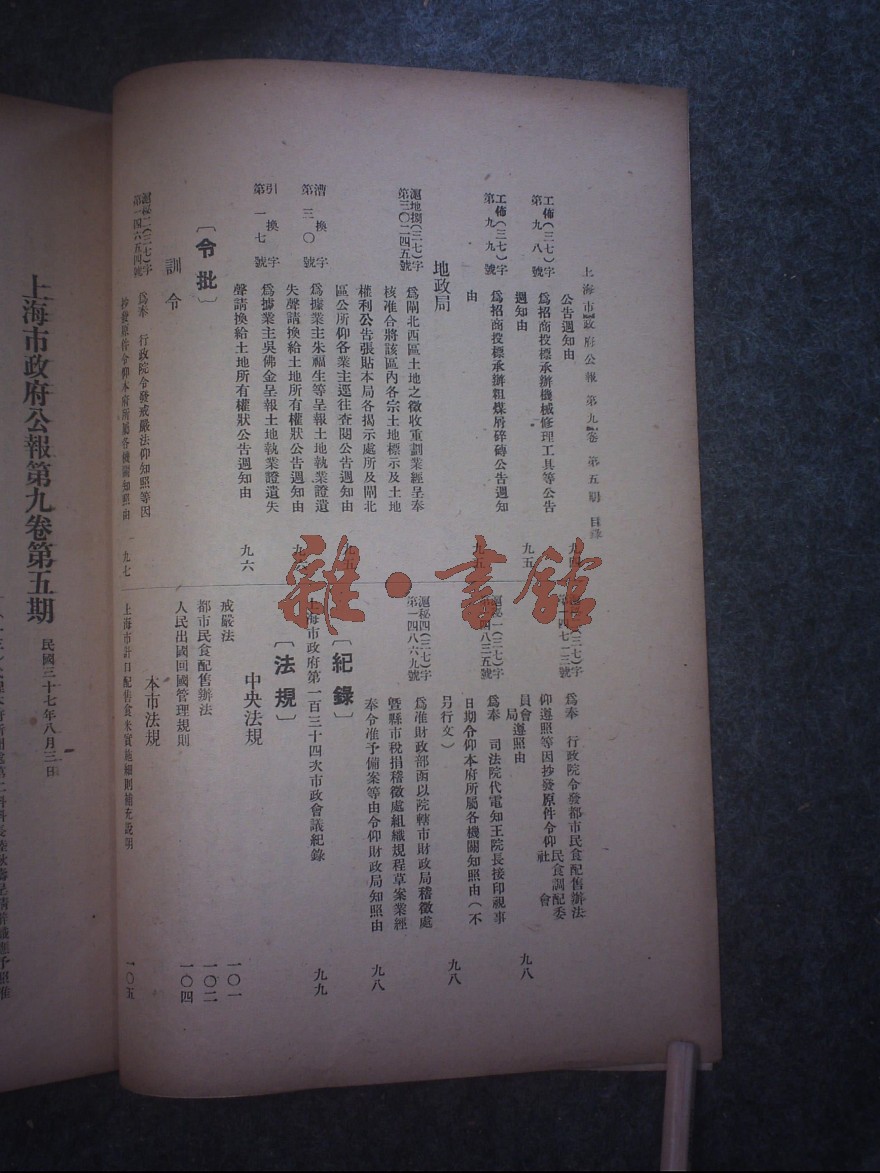 上海市政府公報 第九卷 第五期 目錄
公告週知由
九四
工佈(三七)字第九八號
為招商投標承辦機械修理工具等公告
週知由
九五
工佈(三七)字第九九號
為招商投標承辦粗煤屑碎磚公告週知
由
九五
地政局
滬地撥(三七)字第三〇二四五號
為閘北西區土地之徵收重劃業經呈奉
核准合將該區內各宗土地標示及土地
權利公告張貼本局各揭示處所及閘北
區公所仰各業主逕往查閱公告週知由
九五
漕換字第三〇號
為據業主朱福生等呈報土地執業證遺
失聲請換給土地所有權狀公告週知由
引換字第一七號
為據業主吳佛金呈報土地執業證遺失
聲請換給土地所有權狀公告週知由
九六
〔令批〕
訓令
滬秘二(三七)字第一四六五四號
為奉 行政院令發戒嚴法仰知照等因
抄發原件令仰本府所屬各機關知照由
一九七
(三七)字
四七一三號
為奉 行政院令發都市民食配售辦法
仰遵照等因抄發原件令仰社會局民食調配委員會遵照由
九八
滬秘一(三七)字
四八三五號
為奉 司法院代電知王院長接印視事
日期令仰本府所屬各機關知照由(不
另行文)
九八
滬秘四(三七)字第一四八六九號
為准財政部函以院轄市財政局稽徵處
暨縣市稅捐稽徵處組織規程草案業經
奉令准予備案等由令仰財政局知照由
九八
〔紀錄〕
上海市政府第一百三十四次市政會議紀錄
九九
〔法規〕
中央法規
戒嚴法
一〇一
都市民食配售辦法
一〇二
人民出國回國管理規則
一〇四
本市法規
上海市計口配售食米實施細則補充說明
一〇五
雜·書館
上海市政府公報第九卷第五期
民國三十七年八月三日